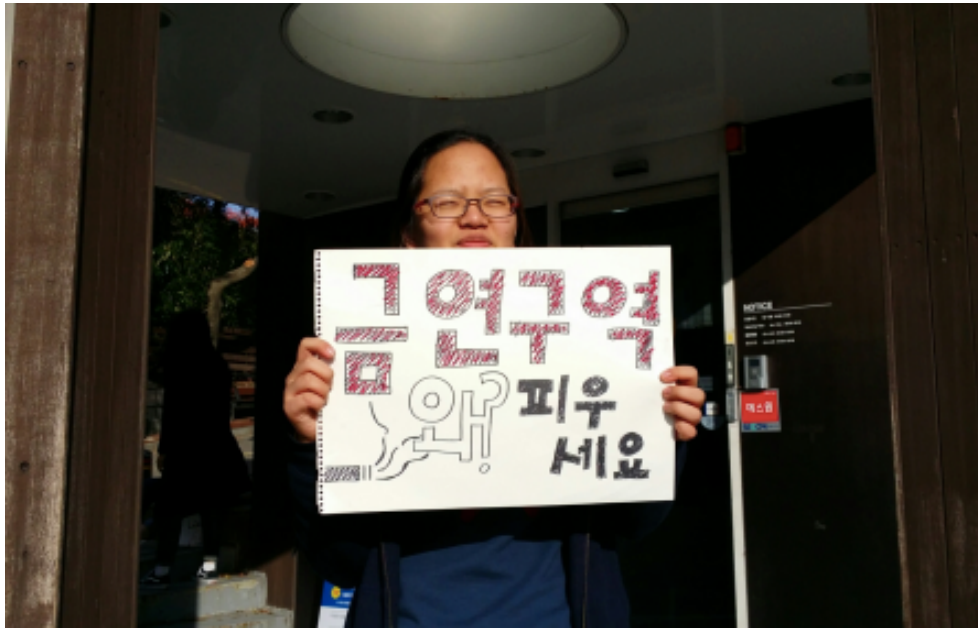 금연구역
왜? 피우
세요
NOTICE
에스원